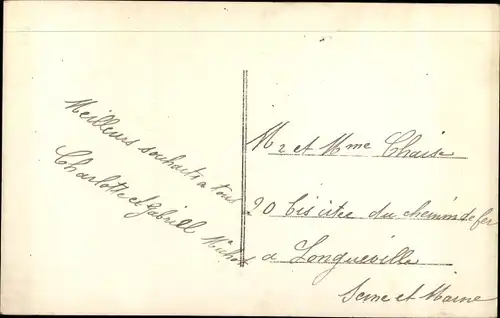 Meilleurs souhaits a tous
Charlotte et Gabriel Michot
Mr et Mme Chaise
20 bis cité du chemin de fer
a Longueville
Seine et Marne